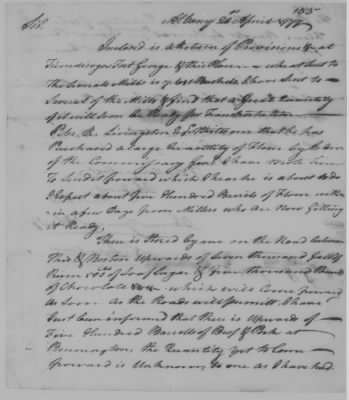 185
Albany 2d April 1777
Sir
Inclosed is a Return of Provisions &c at
Ticonderoga Fort George & this Place wheat sent to
the Several Mills is Bushels, I have sent to
Several of the Mills & find that a Great Quantity
of it will soon be Ready for Transportation
Peter R. Livingston Esqr. writes me that he has
Purchased a Large Quantity of Flour by Order
of the Commissary Genl. I have wrote him
To Send it forward which I hear he is about to do
I Expect about five Hundred Barrels of Flour
in a few Days from Millers who are Now Getting
it Ready,
There is Stored by me on the Road between
This & Boston Upwards of Seven thousand Gallos
Rum of Loaf Sugar & five thousand Pounds
of Chocolate which will Come forward
as Soon as the Roads will permitt. I have
Just been informed that there is Upwards of
Five Hundred Barrells of Beef & Pork at
Bennington, the Quantity yet to Come
forward is Unknown to me as I have had